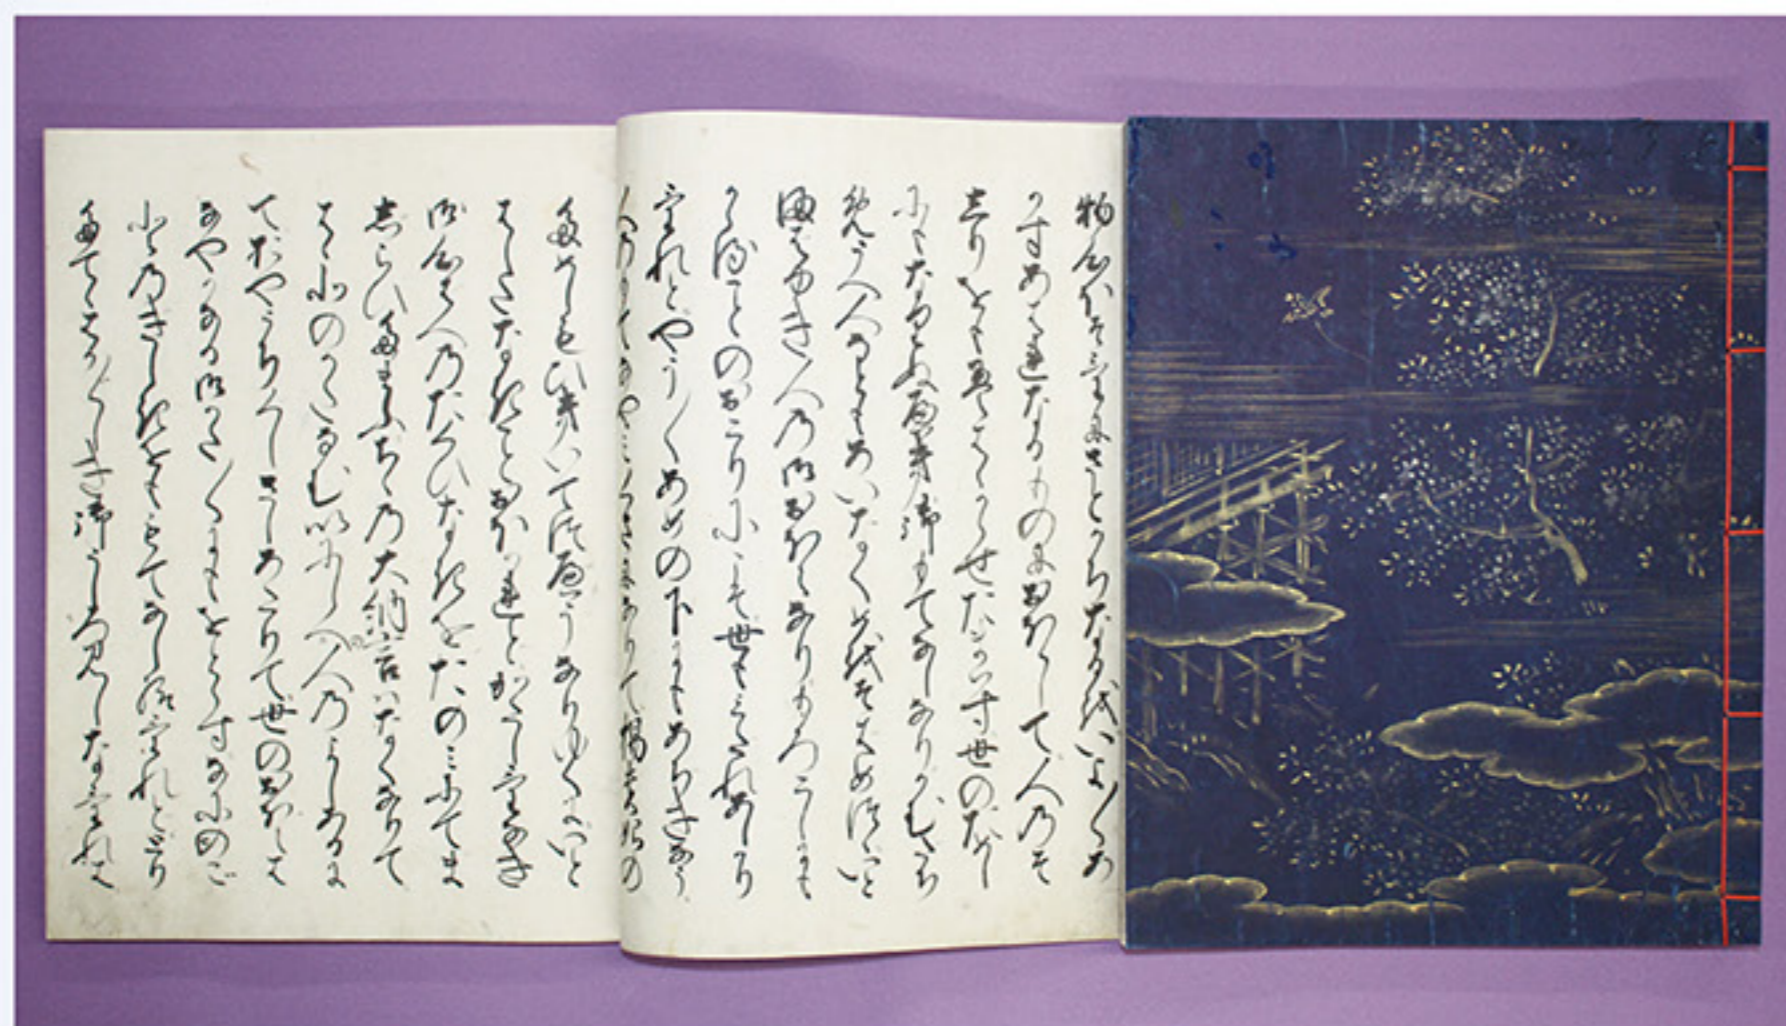 物心ほそけにさとかちなるをいよ/\あ
かすあはれなるものにおほゝして人のそ
しりをもえはゝからせたまはす世のためし
にもなりぬへき御もてなしなりかむたち
めうへ人なともあいなくめをそはめつゝいと
まはゆき人の御おほえなりもろこしにも
かゝることのおこりにこそ世もみたれあしかり
けれとやう/\あめの下にもあちきなう
人のもてなやみくさになりて楊貴妃の
ためしもひきいてつへうなりゆくにいと
はしたなきことおほかれとかたしけなき
御心はへの人のたくひなきをたのみにてま
しらひたまふちゝの大納言はなくなりて
はゝ北のかたなむいにしへの人のよしあるに
ておやうちくしさしあたりて世のおほえは
なやかなる御かた/\にもをとらすなにこ
とのきしきをももてなし給けれととり
たてゝはか/\しき御うしろ見しなけれは